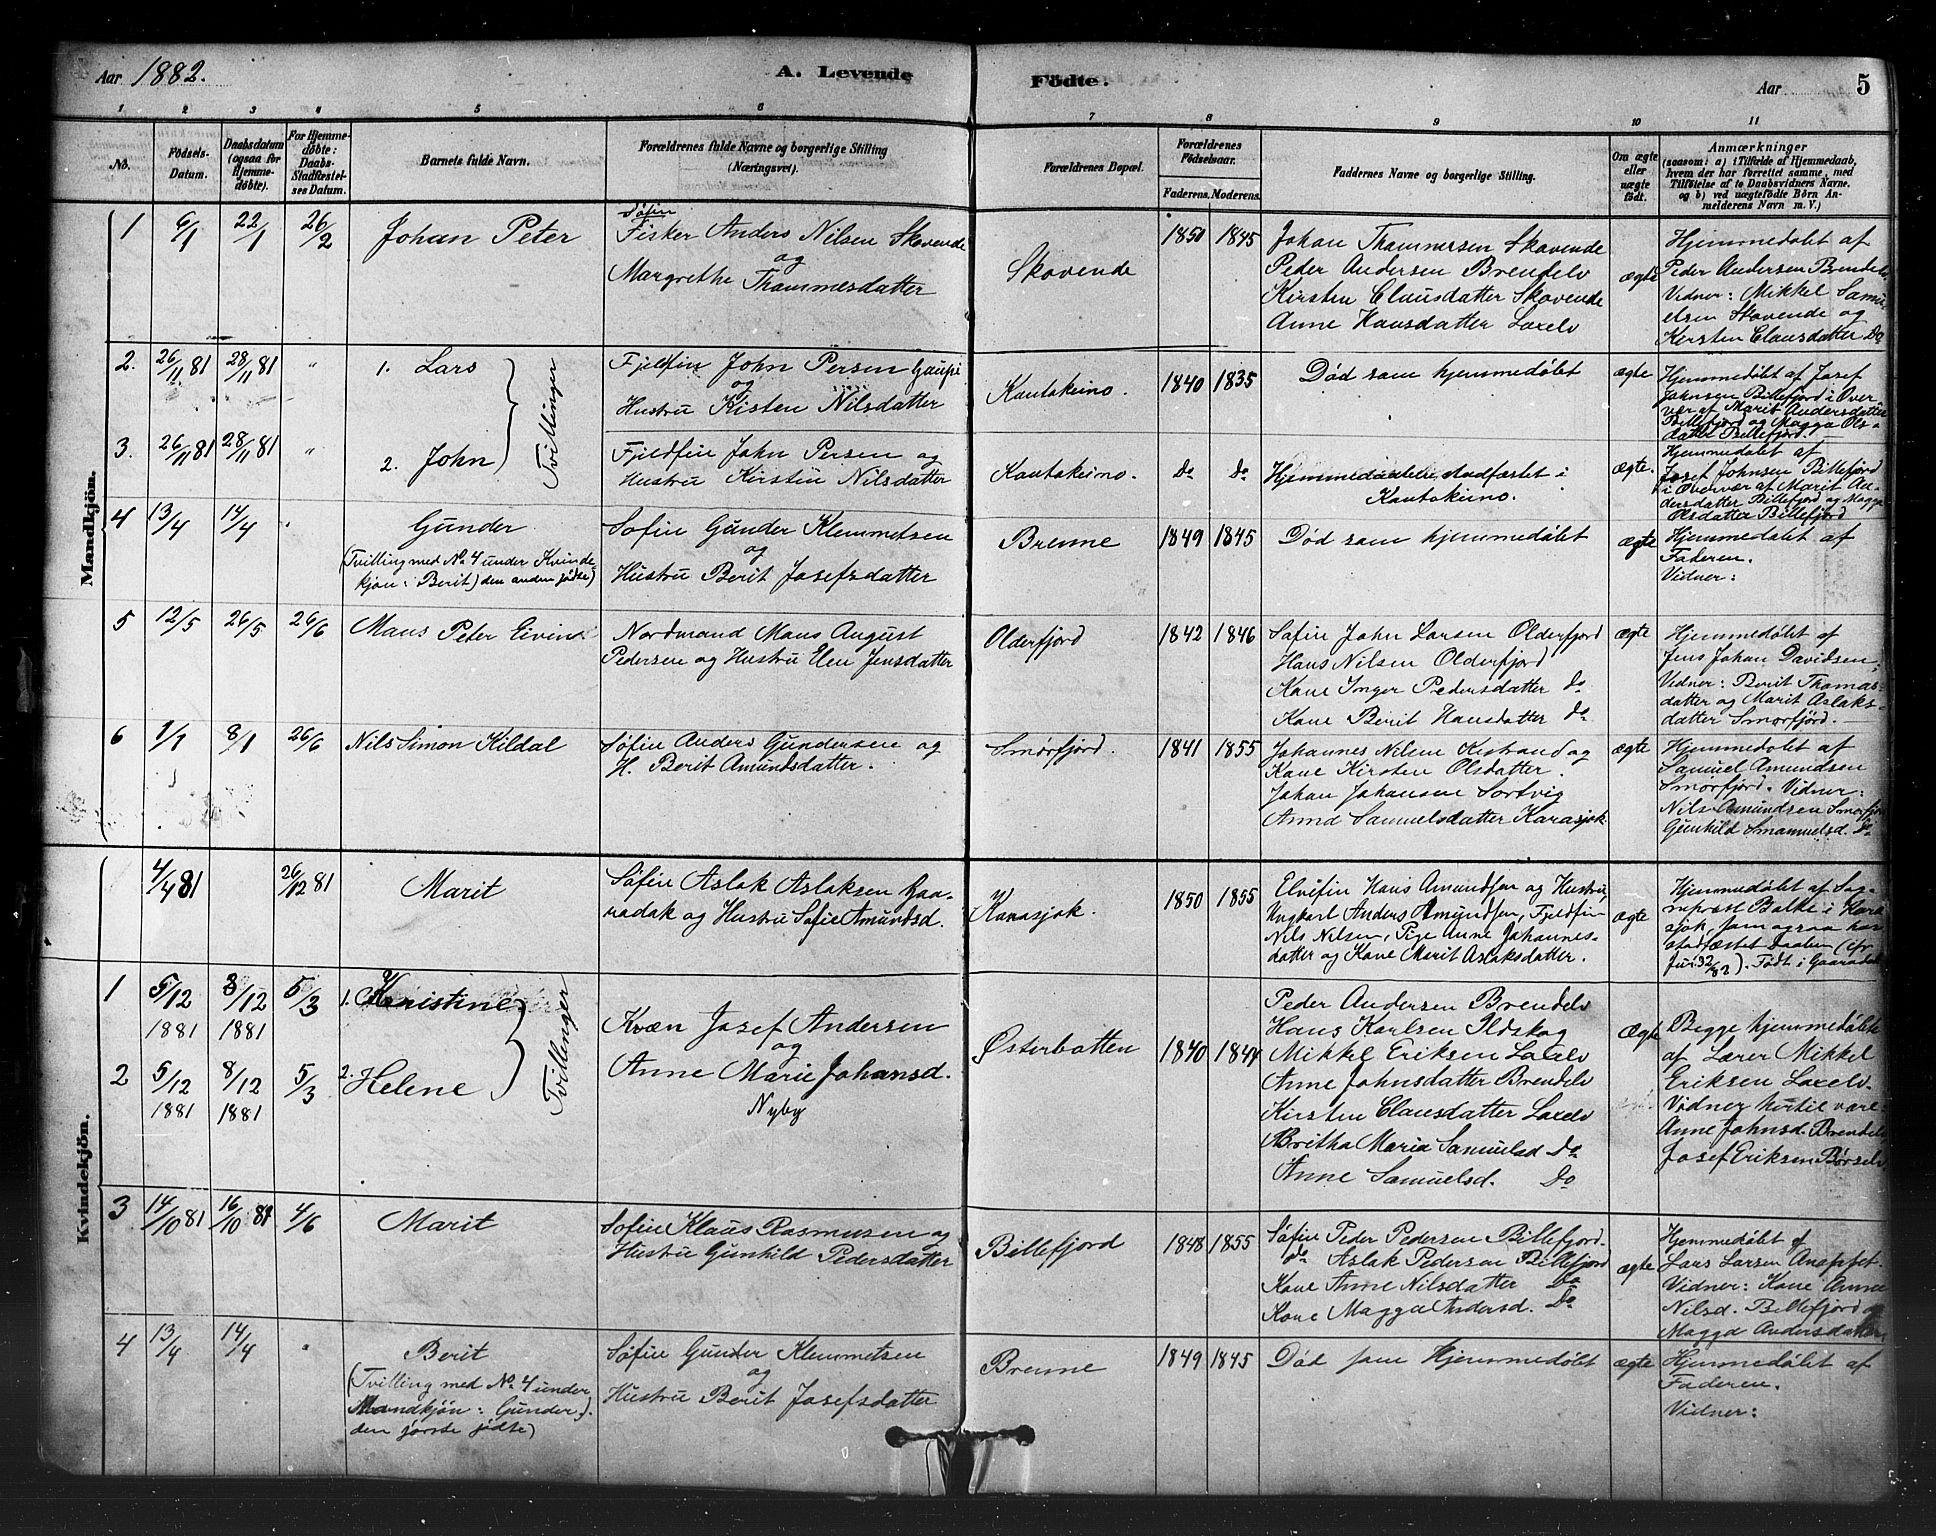 Aar 1882.
A. Levende
Födte.
Aar
5
1 2 3 4 5 6 7 8 9 10 11
No.
Födsels-Datum.
Daabsdatum (ogsaa for Hjemmedöbte).
For Hjemmedöbte: Daabs-Stadfæstelses Datum.
Barnets fulde Navn.
Forældrenes fulde Navne og borgerlige Stilling (Næringsvei).
Forældrenes Bopæl.
Forældrenes Födselsaar.
Faderens. Moderens.
Faddernes Navne og borgerlige Stilling.
Om ægte eller uægte födt.
Anmærkninger
(saasom: a) i Tilfælde af Hjemmedaab, hvem der har forrettet samme, med Tilföielse af to Daabsvidners Navne, og b) ved uægtefödte Börn Anmelderens Navn m. V.)
Mandkjön.
1 6/1 22/1 26/2 Johan Peter
Söfin
Fisker Anders Nilsen Skovende
og
Margrethe Thommesdatter
Skovende
1850 1845
Johan Thommersen Skovende
Peder Andersen Brendelv
Kirsten Clausdatter Skovende
Anne Hansdatter Laxelv
ægte
Hjemmedøbt af
Peder Andersen Brendelv
Vidner: Mikkel Samu-
elsen Skovende og
Kirsten Clausdatter Do
2. 26/11 81 28/11 81 " 1. Lars
Tvillinger
Fjeldfin John Persen Gaupi
og
Hustru Kisten Nilsdatter
Kautokeino.
1840 1835
Død som hjemmedøbt
ægte
Hjemmedøbt af Josef
Johnsen Billefjord i Over-
vær af Marit Andersdatter
Billefjord og Magga Ols-
datter Billefjord.
3. 26/11 81 28/11 81 " 2. John
Fjeldfin John Persen og
Hustru Kirstin Nilsdatter
Kautokeino.
Do Do
Hjemmedaaben stadfæstet i
Kautokeino.
ægte.
Hjemmedøbt af
Josef Johnsen Billefjord
i Overvær af Marit An-
dersdatter Billefjord og Magga
Olsdatter Billefjord
4 13/4 14/4 " Gunder
(Tvilling med No 4 under Kvinde-
kjøn: Berit) den anden fødte)
Søfin Gunder Klemmetsen
og
Hustru Berit Josefsdatter
Brenne
1849 1845
Død som hjemmedøbt
ægte
Hjemmedøbt af
Faderen.
Vidner:
5 12/5 26/5 26/6 Mans Peter Eivind
Nordmand Mans August
Pedersen og Hustru Elen Jensdatter
Olderfjord
1842 1846
Søfin John Larsen Olderfjord
Hans Nilsen Olderfjord
Kone Inger Pedersdatter do
Kone Berit Hansdatter do
ægte
Hjemmedøbt af
Jens Johan Davidsen;
Vidner: Berit Thomas-
datter og Marit Aslaks-
datter Smørfjord.
6 1/1 8/1 26/6 Nils Simon Kildal
Søfin Anders Gundersen og
H. Berit Amundsdatter.
Smørfjord.
1841 1855
Johannes Nilsen Kistrand og
Kone Kirsten Olsdatter.
Johan Johansen Sortvig
Anna Samuelsdatter Karasjok
ægte
Hjemmedøbt af
Samuel Amundsen
Smørfjord. Vidner:
Nils Amundsen Smørfjord
Gunhild Smamuelsd. do
4/4 81 26/12 81 Marit
Søfin Aslak Aslaksen Gaa-
radak og Hustru Sofie Amundsd.
Karasjok.
1850 1855
Elvefin Hans Amundsen og Hustru,
Ungkarl Anders Amundsen, Fjeldfin
Nils Nilsen, Pige Anne Johannes-
datter og Kone Marit Aslaksdatter.
ægte
Hjemmedøbt af Sog-
nepræst Balke i Kara-
sjok, som ogsaa har
stadfæstet Daaben (cfr
Jur. 32/82). Født i Gaaradak
Kvindekjön.
1 5/12 1881 8/12 1881 5/3 1. Kristine
Tvillinger
2 5/12 1881 8/12 1881 5/3 2. Helene
Kvæn Josef Andersen
og
Anne Marie Johansd.
Nyby
Østerbotten
1840 1844
Peder Andersen Brendelv
Hans Karlsen Ildskog
Mikkel Eriksen Laxelv
Anne Johnsdatter Brendelv
Kirsten Clausdatter Laxelv
Britha Maria Samuelsd Do
Anne Samuelsd. Do
Ægte
Begge hjemmedøbte
af Lærer Mikkel
Eriksen Laxelv.
Vidner hertil vare
Anne Johnsd. Brendelv
Josef Eriksen Børselv
3 14/10 81 16/10 81 4/6 Marit
Søfin Klaus Rasmusen og
Hustru Gunhild Pedersdatter
Billefjord
1848 1855
Søfin Peder Pedersen Billefjord.
do Aslak Pedersen Billefjord
Kone Anne Nilsdatter Do
Kone Magga Andersd. Do
ægte
Hjemmedøbt af
Lars Larsen
Vidner: Kone Anne
Nilsd. Billefjord og
Magga Andersdatter
4 13/4 14/4 " Berit
(Tvilling med No 4 under
Mandkjøn: Gunder).
den første fødte)
Søfin Gunder Klemmetsen
og
Hustru Berit Josefsdatter
Brenne
1849 1845
Død som Hjemmedøbt
ægte
Hjemmedøbt af
Faderen.
Vidner: